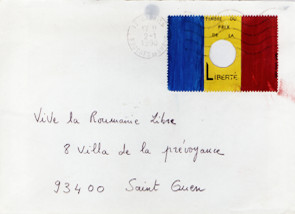 TIMBRE DU
PRIX
DE LA
LIBERTÉ
Vive la Roumanie Libre
8 Villa de la prévoyance
93400 Saint Ouen